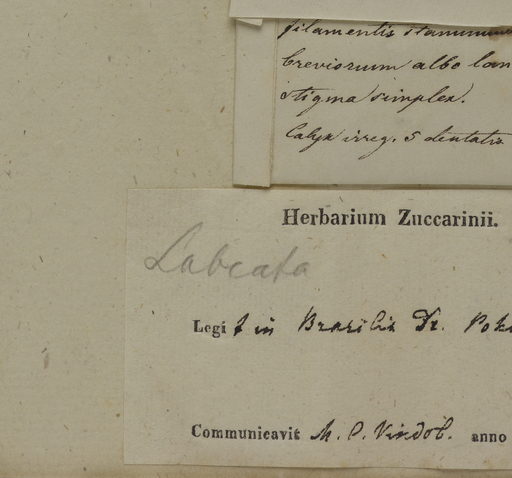 filamentis staminum
breviorum albo lan
stigma simplex.
Calyx irreg. 5 dentatis
Herbarium Zuccarinii.
Labeata
Legit in Brasilia Dr. Poh
Communicavit M. C. Vindob. anno